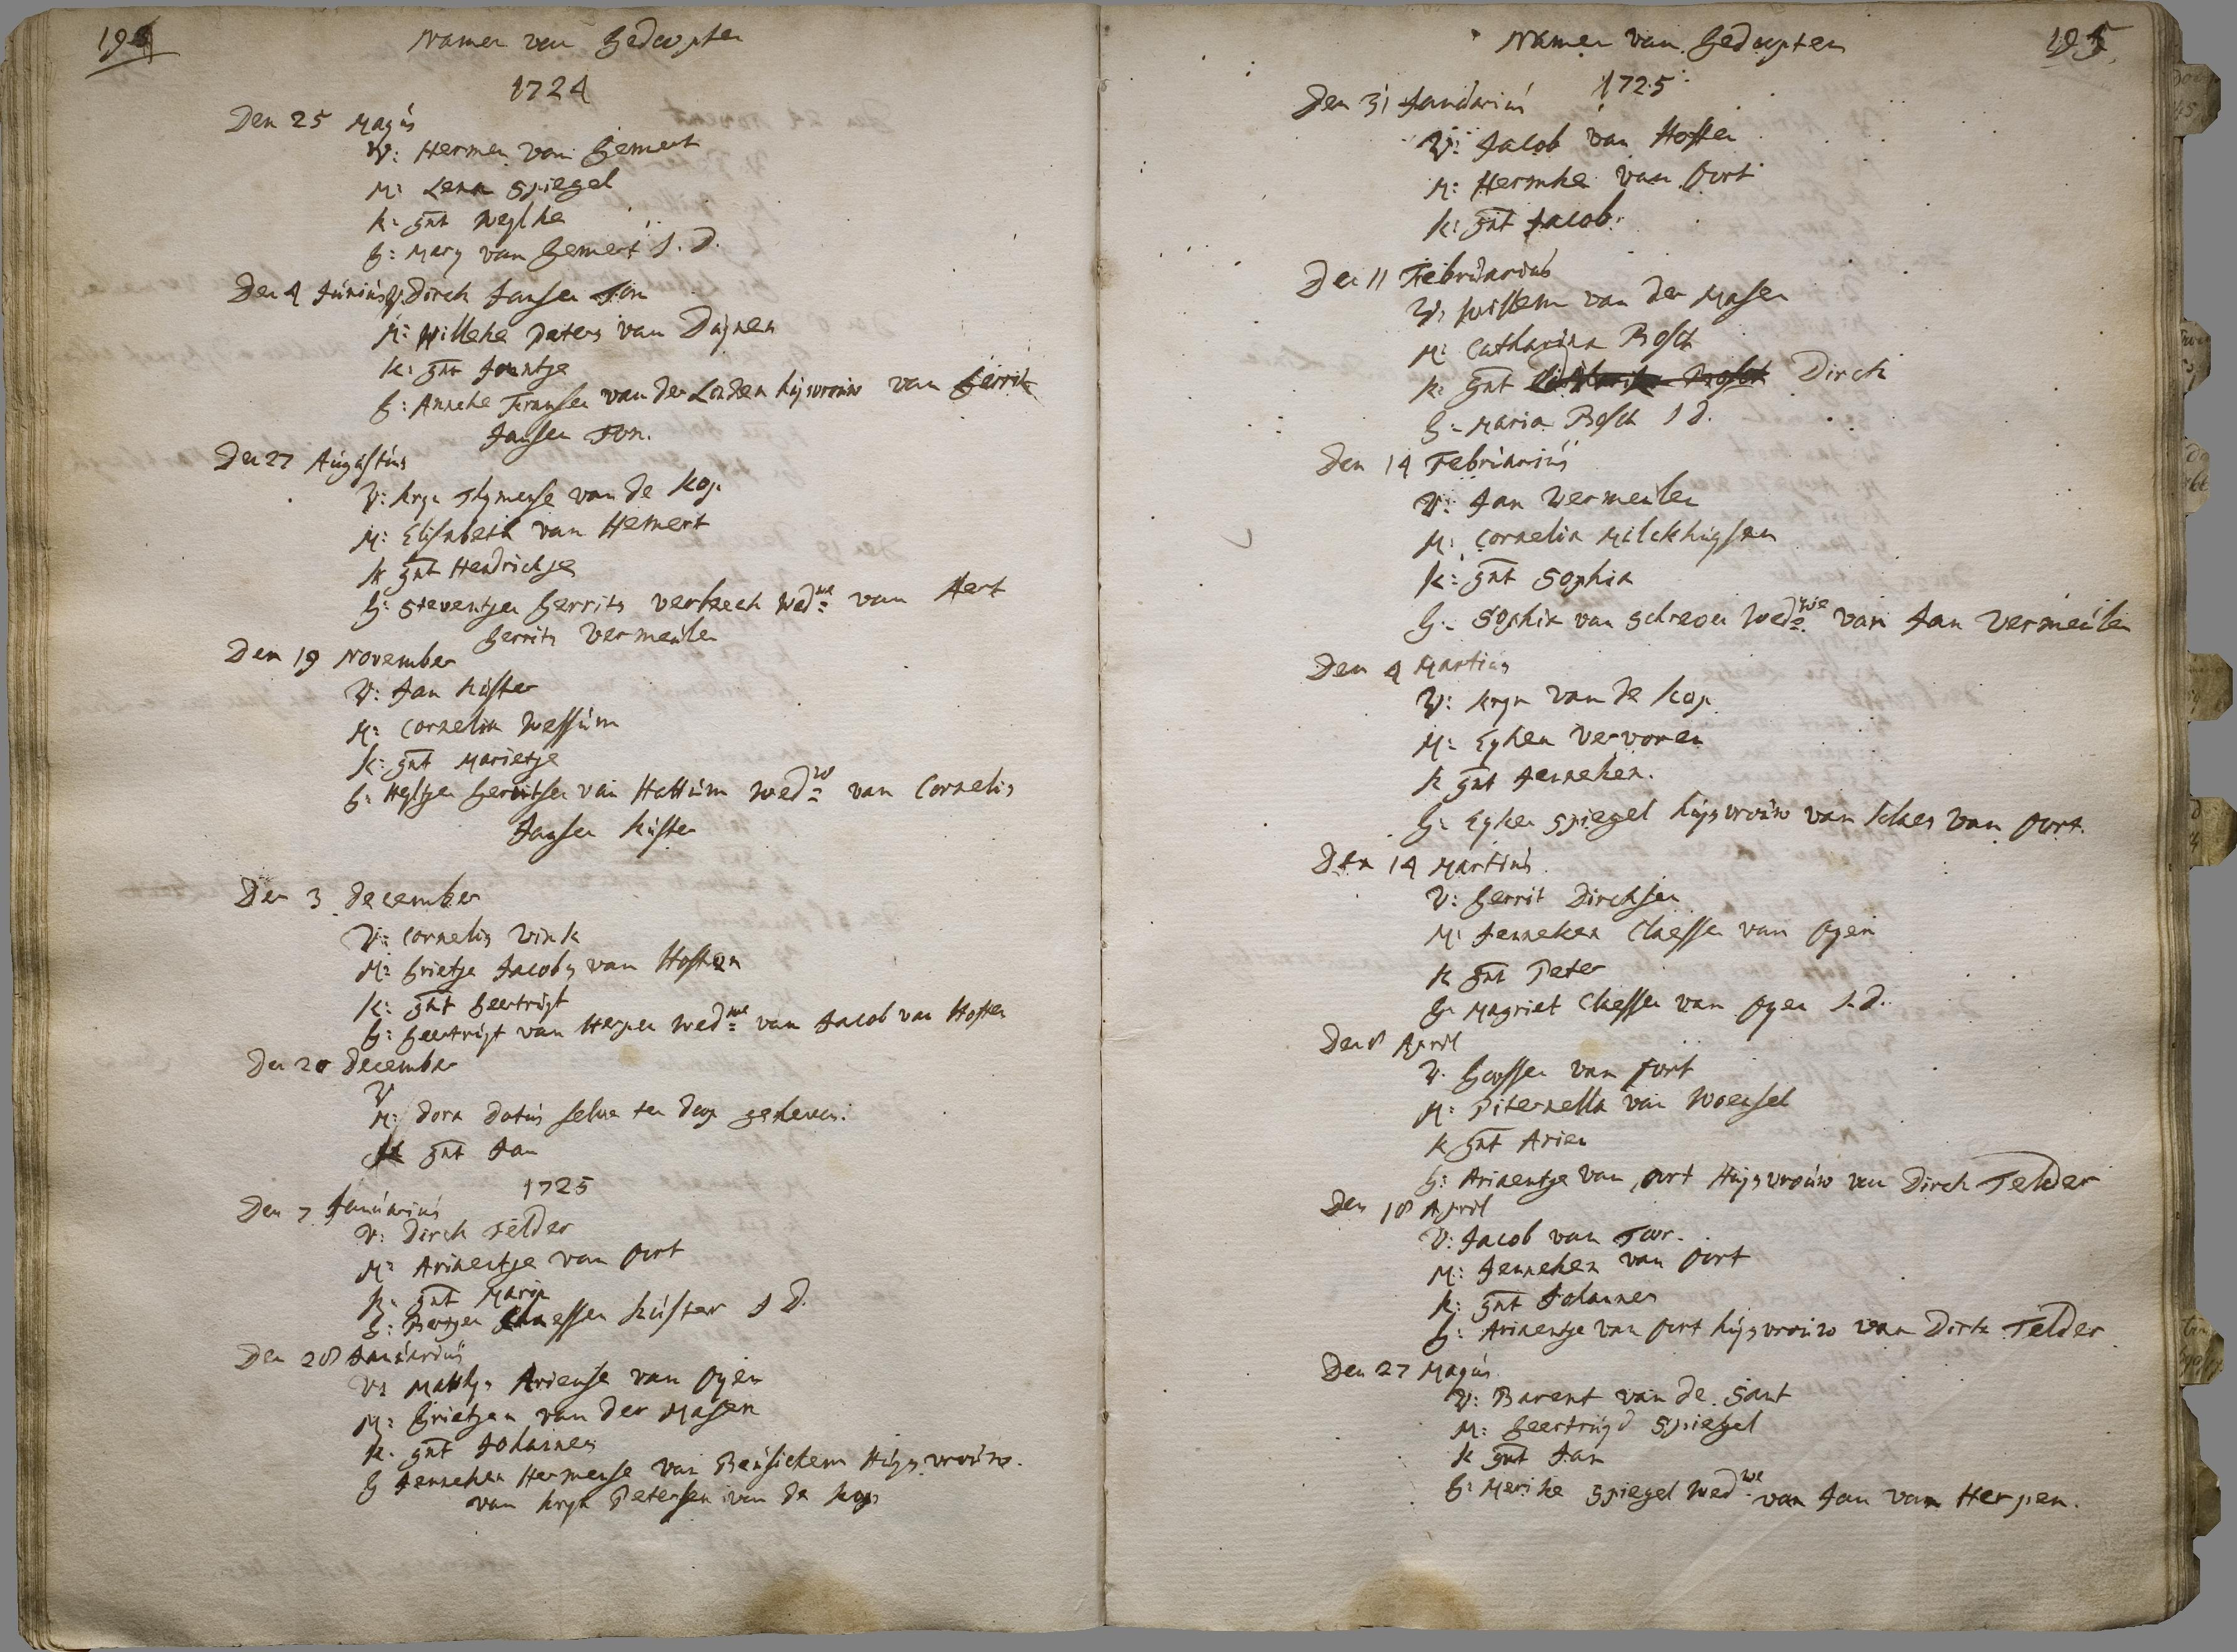 194
Namen van Gedoopten
1724
Den 25 Mayús
V: Hermen van Gemert
M: Lena Spiegel
k: gnt Neylke
G: Mary van Gemert J. D.
Den 4 Júniús V: Dirck Jansen Ton
M: Willeke Peters van Duynen
k: gnt Jantje
G: Anneke Fransen van der Linden húysvroúw van Gerrit
Jansen Ton.
Den 27 Aúgústús
V: kryn Thymense van de kop
M: Elisabeth van Hemert
k gnt Hendrickje
G: Steventjen Gerrits verbeeck Wed.we van Aert
Gerrits Vermeúlen
Den 19 November
V: Jan kúster
M: Cornelia Wessúm
k: gnt Marietje
G: Heyltjen Gerritsen van Hattúm Wed.w van Cornelis
Jansen kúster
Den 3 December
V: Cornelis Vink
M: Grietje Jacobs van Hosten
k: gnt Geertrúyt
G: Geertrúyt van Herpen Wed.we van Jacob van Hosten
Den 20 December
V
M: Dora Datús selve ten doop geheven.
k gnt Jan
1725
Den 7 Janúariús
V: Dirck Telder
M: Ariaentje van Oort
k: gnt Maria
G: Claessen kúster J D.
Den 28 Janúariús
V: Matthys Ariense van Oyen
M: Grietjen van der Masen
k: gnt Johannes
G Jenneken Hermense van Beúsichem Húysvroúw.
van kryn Petersen van de kop
195.
Namen van Gedoopten
1725
Den 31 Janúariús
V: Jacob van Hosten
M: Hermke van Oort
k: gnt Jacob.
Den 11 Febrúariús
V: Willem van der Masen
M: Catharina Bosch
k: gnt Dirck
G: Maria Bosch J D.
Den 14 Febrúariús
V: Jan Vermeulen
M: Cornelia Milckhúysen
k: gnt Sophia
G: Sophia van Schreven Wed.we van Jan Vermeúlen
Den 4 Martiús
V: kryn van de kop
M: Eyken Vervoren
k gnt Jenneken.
G: Eyken Spiegel húysvroúw van klaes van Oort.
Den 14 Martiús
V: Gerrit Dircksen
M: Jenneken Claessen van Oyen
k gnt Peter
G: Magriet Claessen van Oyen J. D.
Den 8 April
V: Goossen van Oort
M: Piternella van Woensel
k gnt Arien
G: Ariaentje van Oort Húysvroúw van Dirck Telder
Den 18 April
V: Jacob van Toor.
M: Jenneken van Oort
k: gnt Johannes
G: Ariaentje van Oort húysvroúw van Dirck Telder
Den 27 Mayús
V: Barent van de Sant
M: Geertrúyd Spiegel
k gnt Jan
G: Merike Spiegel Wed.we van Jan van Herpen.